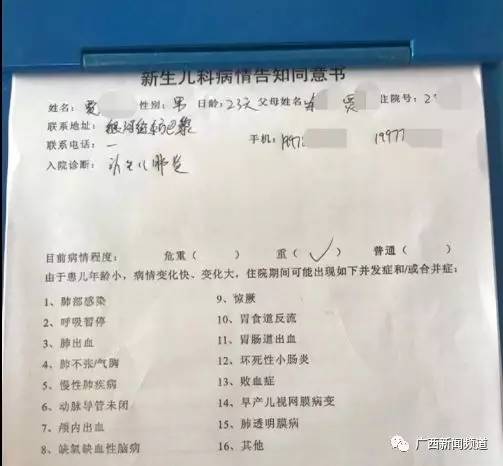 新生儿科病情告知同意书
姓名： 性别：男 日龄：23天 父母姓名： 住院号：2
联系地址：
联系电话：一 手机：1997 19977
入院诊断：新生儿肺炎
目前病情程度： 危重（ ） 重（√） 普通（ ）
由于患儿年龄小，病情变化快、变化大，住院期间可能出现如下并发症和/或合并症：
1、肺部感染 9、惊厥
2、呼吸暂停 10、胃食道反流
3、肺出血 11、胃肠道出血
4、肺不张/气胸 12、坏死性小肠炎
5、慢性肺疾病 13、败血症
6、动脉导管未闭 14、早产儿视网膜病变
7、颅内出血 15、肺透明膜病
8、缺氧缺血性脑病 16、其他
广西新闻频道